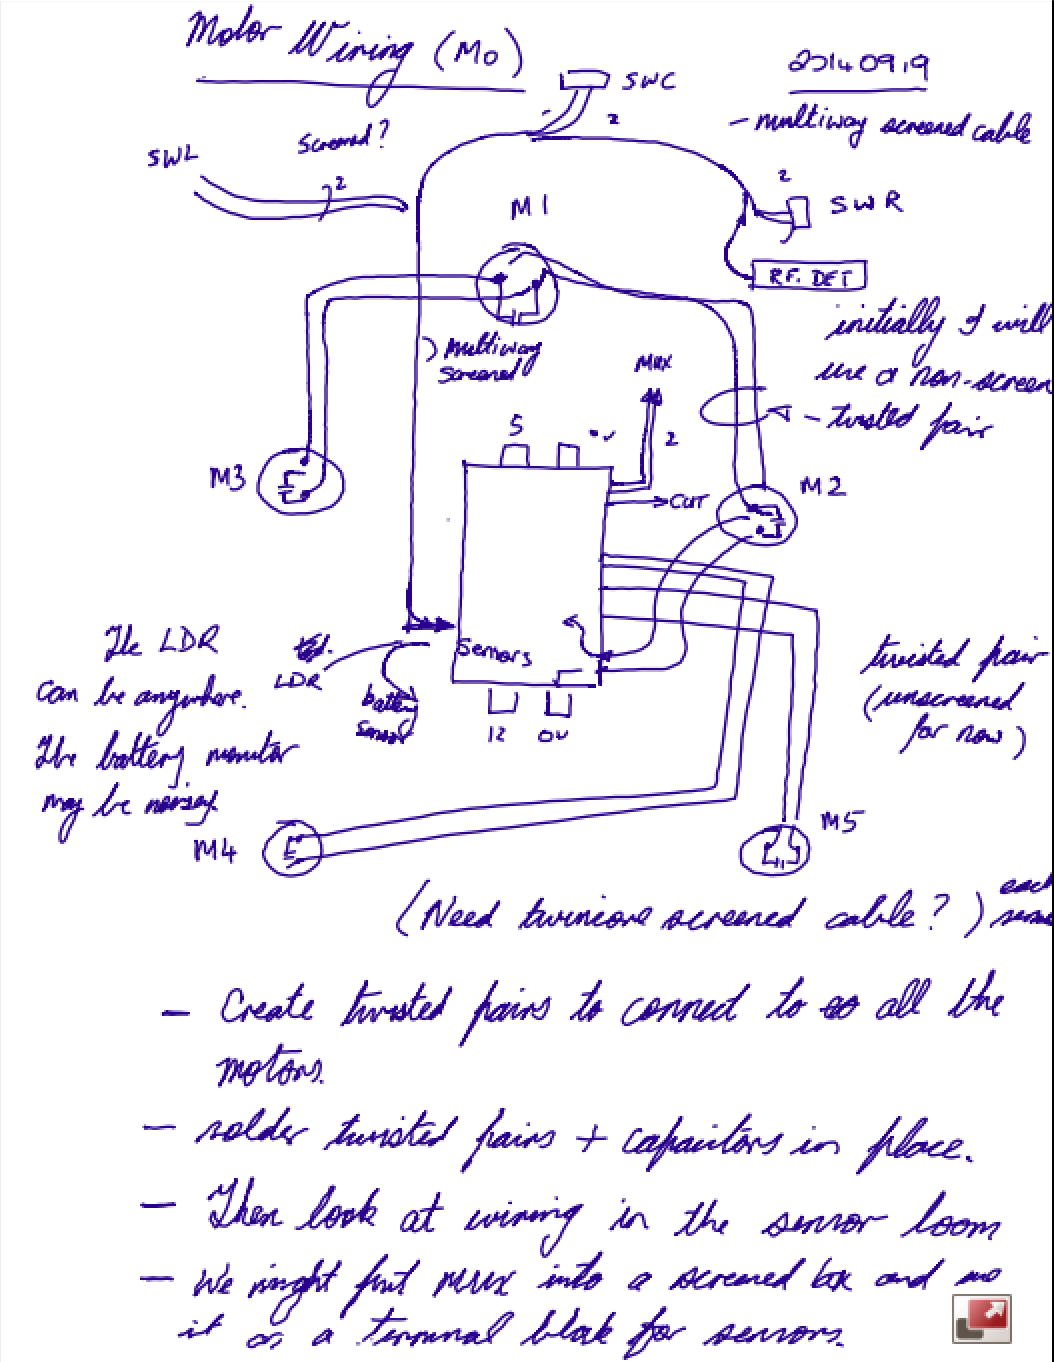 Motor Wiring (Mo)
20140919
SWC
2
- multiway screened cable
Screened?
SWL
2
2
SWR
M1
R.F. DET
initially I will
use a non-screen
- twisted pair
) Multiway
screened
MUX
2
5
0V
M3
M2
CUT
Sensors
The LDR
can be anywhere.
The battery monitor
may be noisy.
LDR
battery
sensor
12
0V
twisted pair
(unscreened
for now)
M4
M5
(Need twincore screened cable?)
each
- Create twisted pairs to connect to all the
motors.
- solder twisted pairs + capacitors in place.
- Then look at wiring in the sensor loom
- We might put MUX into a screened box and
it as a terminal block for sensors.